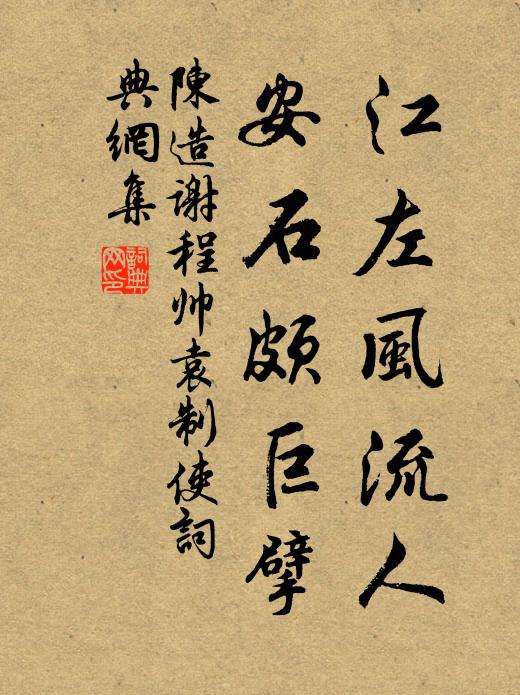 江左風流人
安石頗巨擘
陳造謝程帅袁制使詞
典網集
詞典网印